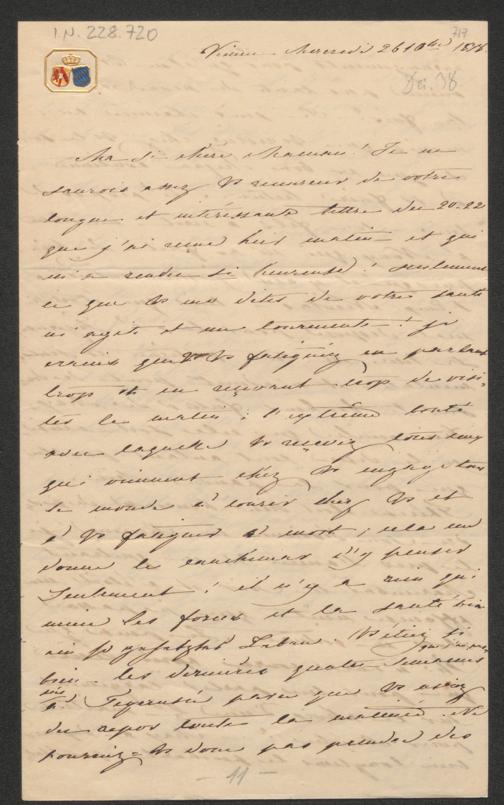 I.N. 228.720
719
Vienne Mercredi 26 10bre 1838
Dez. 38
Ma si chère Maman! Je ne
saurois assez Vs remercier de votre
longue et intéressante lettre du 20-22
que j'ai reçue hier matin et qui
m'a rendue si heureuse! seulement
ce que Vs me dites de votre santé
m'agite et me tourmente! je
crains que Vs Vs fatiguiez en parlant
trop et en recevant trop de visi-
tes le matin; l'extrême bonté
avec laquelle Vs recevez tous ceux
qui viennent chez Vs engage tout
le monde à courir chez Vs et
à Vs fatiguer à mort; cela me
donne le cauchemar d'y penser
seulement! il n'y a rien qui
mine les forces et la santé
Leben. Vs étiez si
bien les dernières quatre semaines
à Tegernsée parce que Vs aviez
du repos toute la matinée. Ne
pourriez-Vs donc pas prendre des
- 11 -